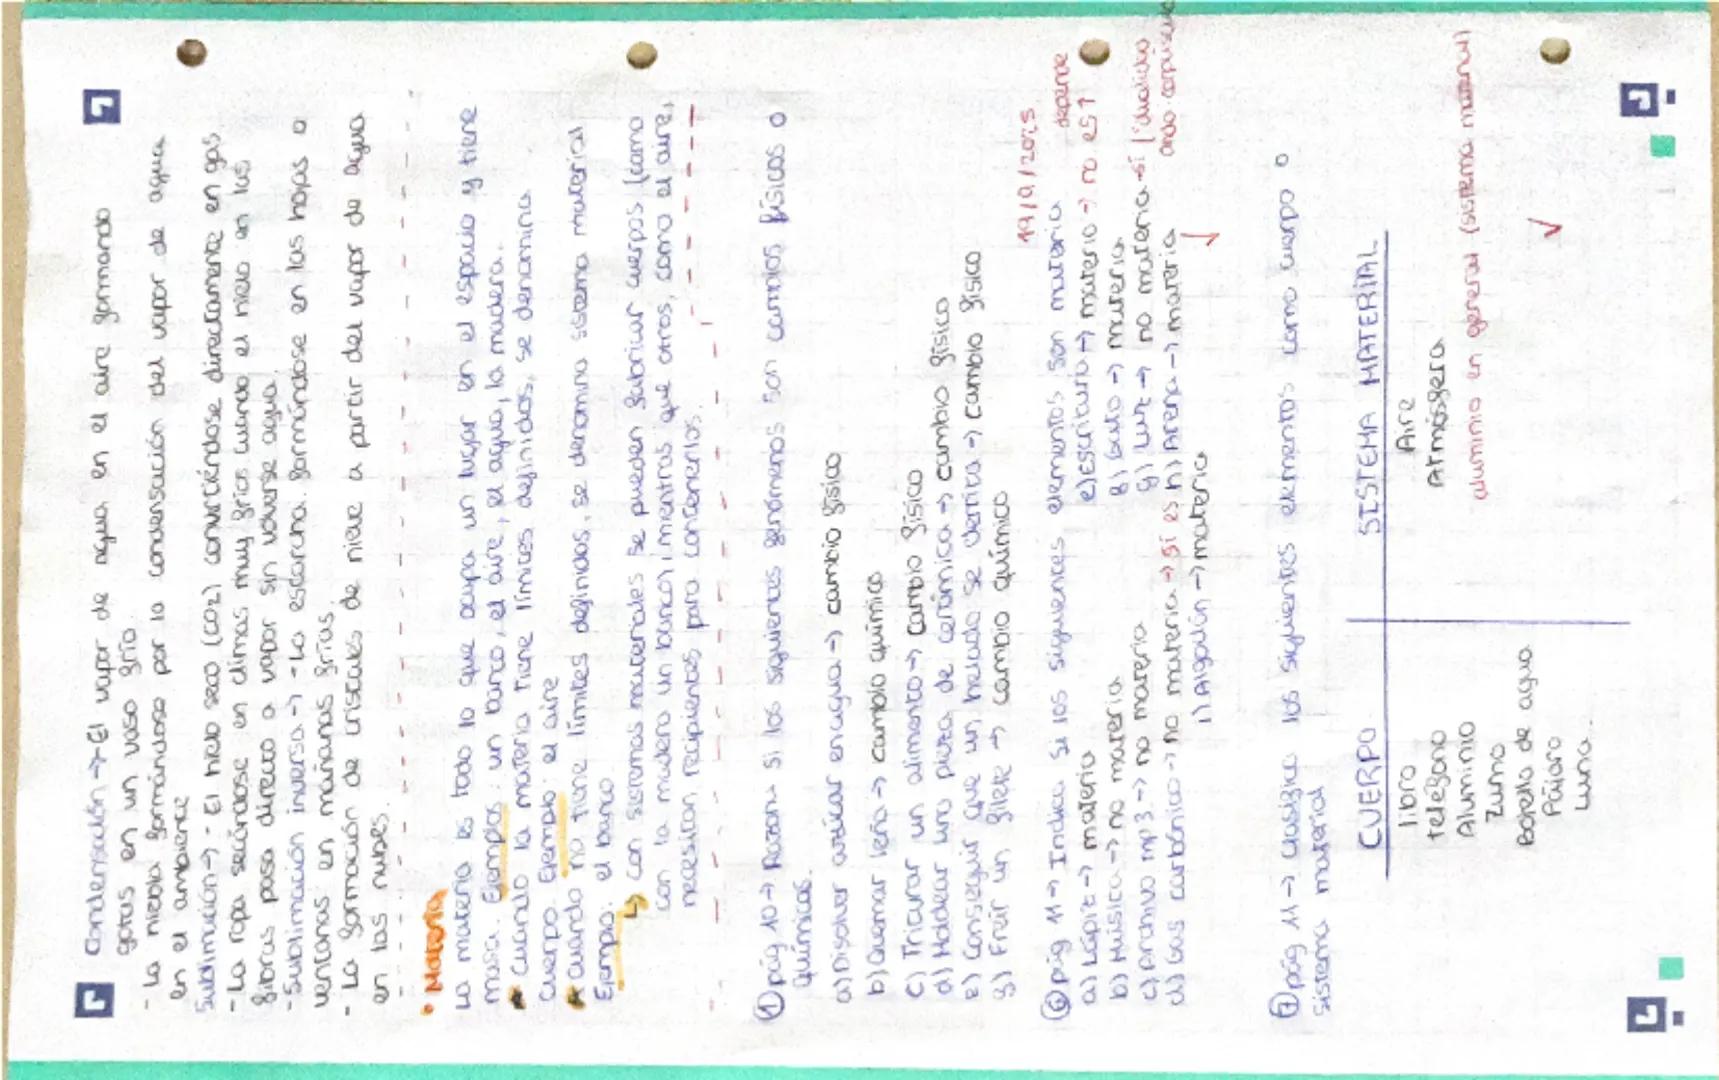 Condensación → El vapor de agua en el aire formando
gotas en un vaso frío
- La niebla formándose por la condensación del vapor de agua
en el ambiente
Sublimación → El hielo seco (CO2) convirtiéndose directamente en gas
- La ropa secándose en climas muy fríos cuando el hielo en las
fibras pasa directo a vapor sin volverse agua
- Sublimación inversa → La escarcha formándose en las hojas o
ventanas en mañanas frías
- La formación de cristales de nieve a partir del vapor de agua
en las nubes.
• Materia
La materia es todo lo que ocupa un lugar en el espacio y tiene
masa. Ejemplos: un banco, el aire, el agua, la madera.
★ Cuando la materia tiene límites definidos, se denomina
cuerpo. Ejemplo: el aire
★ cuando no tiene límites definidos, se denomina sistema material
Ejempo: el banco
↳ con sistemas materiales se pueden fabricar cuerpos (como
con la madera un banco), mientras que otros, como el aire,
necesitan recipientes para contenerlos.
① pág 10 → Razona si los siguientes fenómenos son cambios físicos o
químicos.
a) Disolver azúcar en agua → cambio físico
b) Quemar leña → cambio químico
c) Triturar un alimento → cambio físico
d) Moldear una pieza de cerámica → cambio físico
e) Conseguir que un helado se derrita → cambio físico
g) Freír un filete → cambio químico
19/9/2025
⑥ pág 11 → Indica si los siguientes elementos son materia
a) Lápiz → materia
b) Música → no materia
c) Archivo mp3 → no materia
d) Gas carbónico → no materia → sí es
e) Escritura → materia → no es? depende
f) Gato → materia
g) Luz → no materia → sí
h) Arena → materia
i) Algodón → materia
pág 11 → Clasifica los siguientes elementos como cuerpo o
sistema material
CUERPO SISTEMA MATERIAL
libro Aire
teléfono Atmósfera
Aluminio aluminio en general (sistema material)
Zumo
Botella de agua
Pájaro
Luna